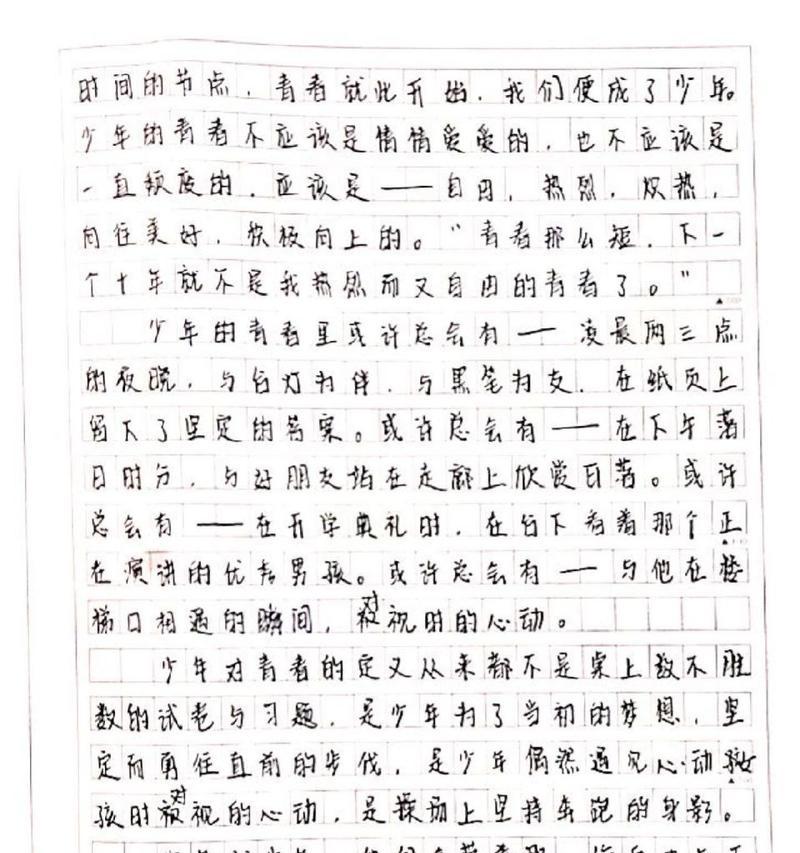 时间的节点，青春就此开始，我们便成了少年。
少年的青春不应该是情情爱爱的，也不应该是
一直颓废的，应该是——自由，热烈，炽热，
向往美好，积极向上的。“青春那么短，下一
个十年就不是我热烈而又自由的青春了。”
少年的青春里或许总会有——凌晨两三点
的夜晚，与台灯为伴，与黑笔为友，在纸页上
留下了坚定的答案。或许总会有——在下午落
日时分，与好朋友站在走廊上欣赏日落。或许
总会有——在开学典礼时，在台下看着那个正
在演讲的优秀男孩。或许总会有——与他在楼
梯口相遇的瞬间，被对视时的心动。
少年对青春的定义从来都不是桌上数不胜
数的试卷与习题，是少年为了当初的梦想，坚
定而勇往直前的步伐，是少年偶然遇见心动
孩时对视的心动，是操场上坚持奔跑的身影。